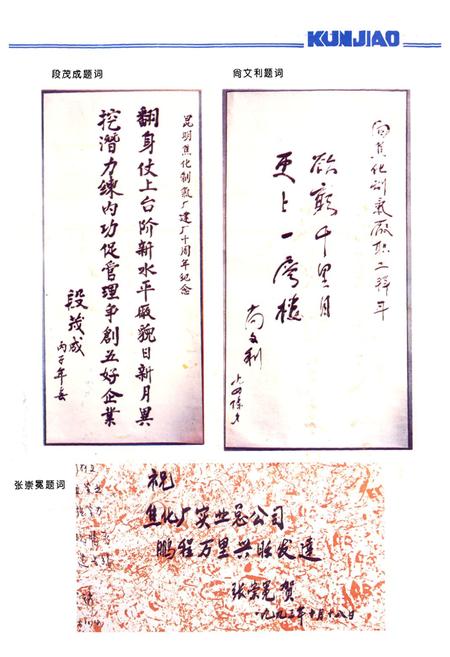 KUNJIAO
段茂成题词
昆明焦化制气厂建厂十周年纪念
翻身仗上台阶新水平厰貌日新月異
挖潜力練内功促管理争創五好企業
段茂成
丙子年
尚文利题词
向焦化制氣厰职工拜年
欲窮千里目
更上一層樓
尚文利
张崇冕题词
祝
焦化厂实业总公司
鹏程万里兴旺发達
张崇冕 贺
一九九三年十月十八日